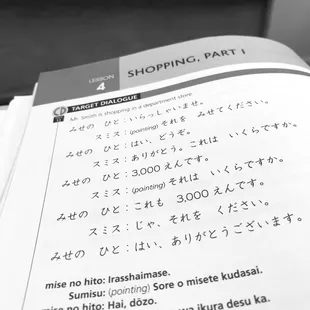 LESSON
4
SHOPPING, PART 1
TARGET DIALOGUE
Mr. Smith is shopping in a department store.
みせの ひと：いらっしゃいませ。
スミス：(pointing) それを みせてください。
みせの ひと：はい、どうぞ。
スミス：ありがとう。これは いくらですか。
みせの ひと：3,000 えんです。
スミス：(pointing) それは いくらですか。
みせの ひと：これも 3,000 えんです。
スミス：じゃ、それを ください。
みせの ひと：はい、ありがとうございます。
mise no hito: Irasshaimase.
Sumisu: (pointing) Sore o misete kudasai.
mise no hito: Hai, dōzo.
wa ikura desu ka.